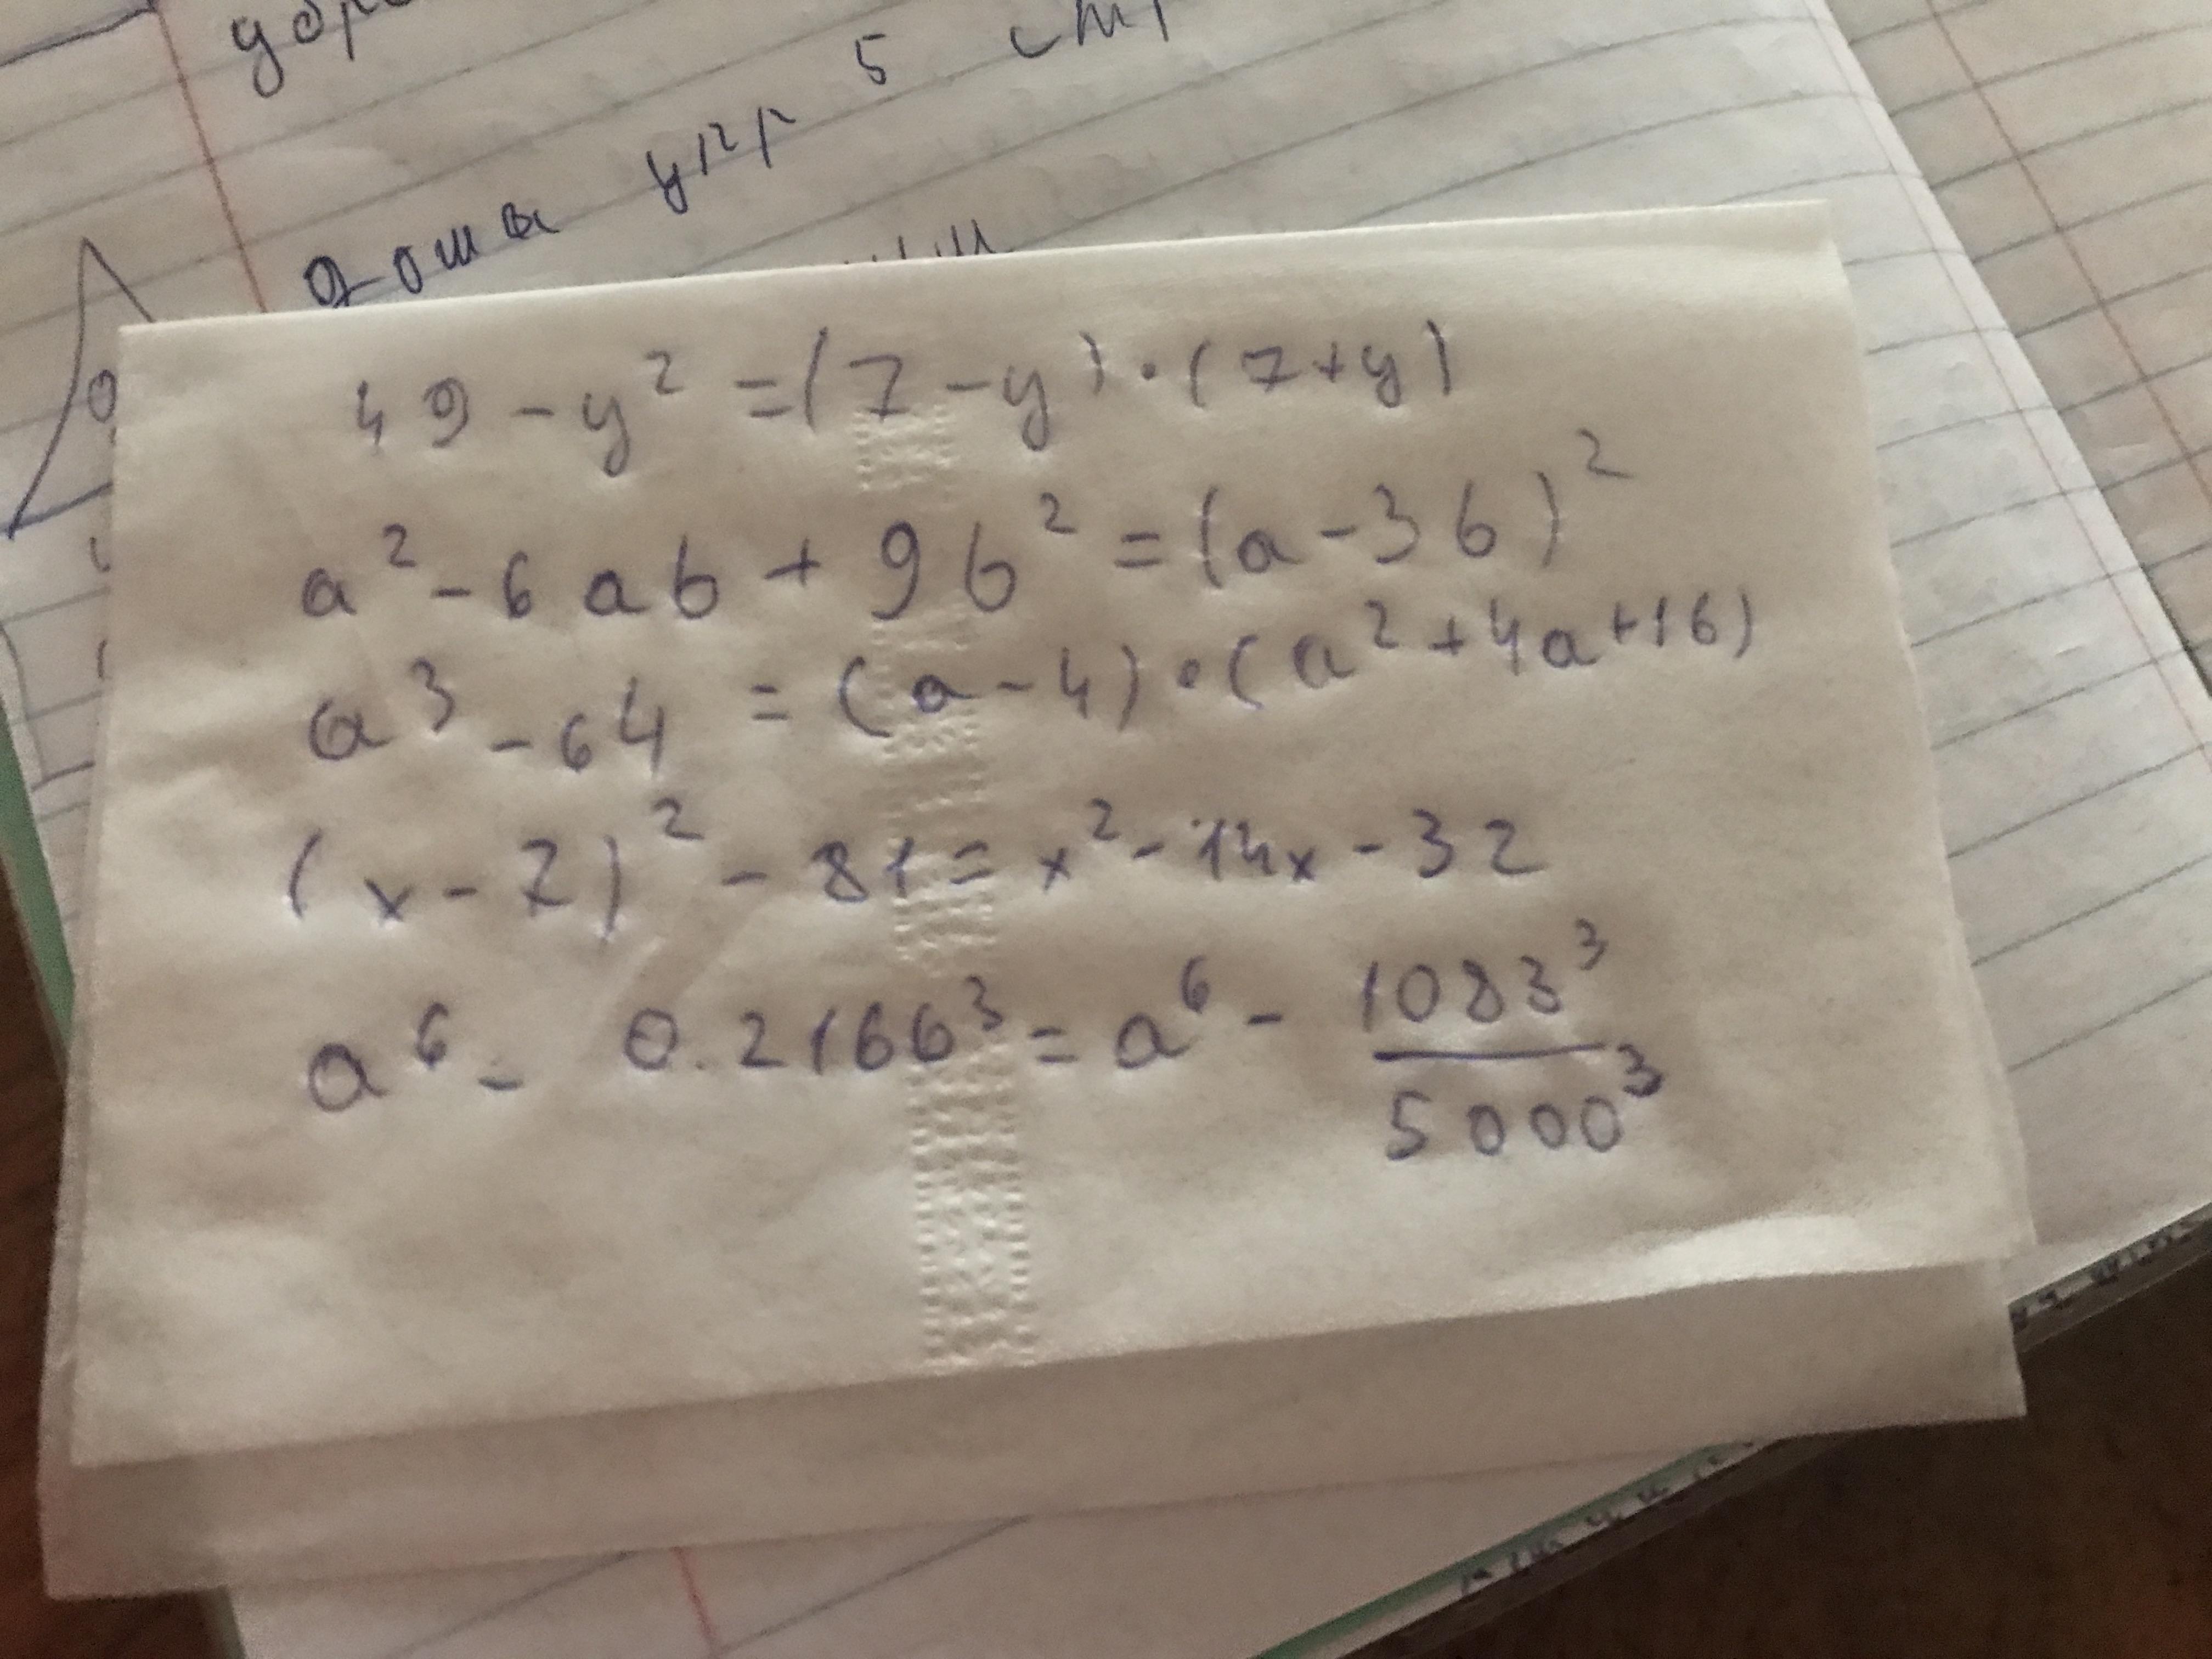 5
дома упр
49 - y² = (7 - y) · (7 + y)
a² - 6ab + 9b² = (a - 3b)²
a³ - 64 = (a - 4) · (a² + 4a + 16)
(x - 7)² - 81 = x² - 14x - 32
a⁶ - 0.2166³ = a⁶ - 1083³/5000³